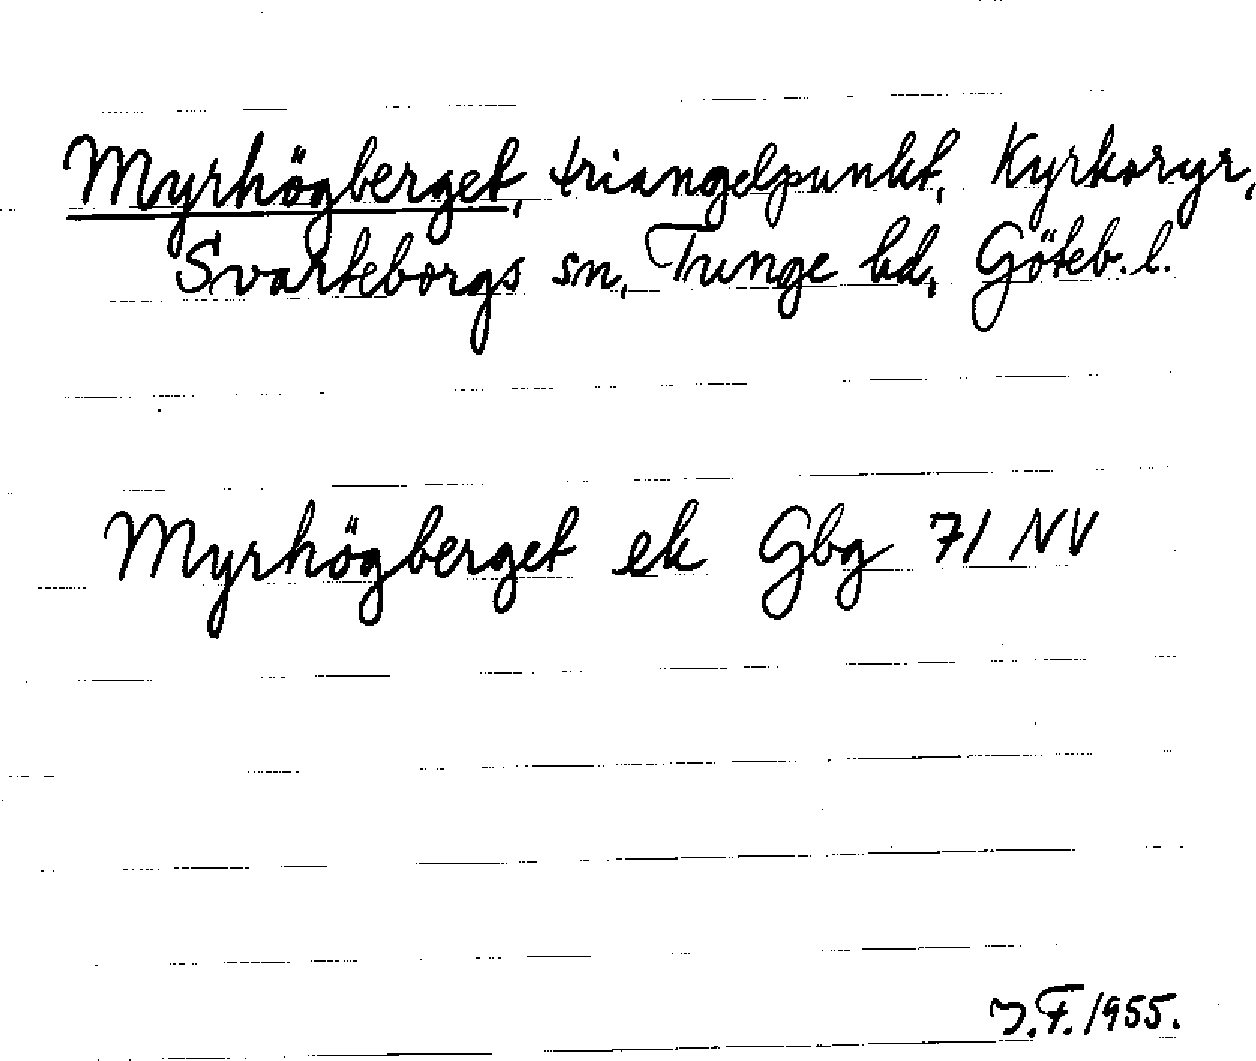 Myrhögberget, triangelpunkt, Kyrkoryr,
Svarteborgs sn, Tunge hd, Göteb. l.
Myrhögberget ek Gbg 71 NV
J.F. 1955.